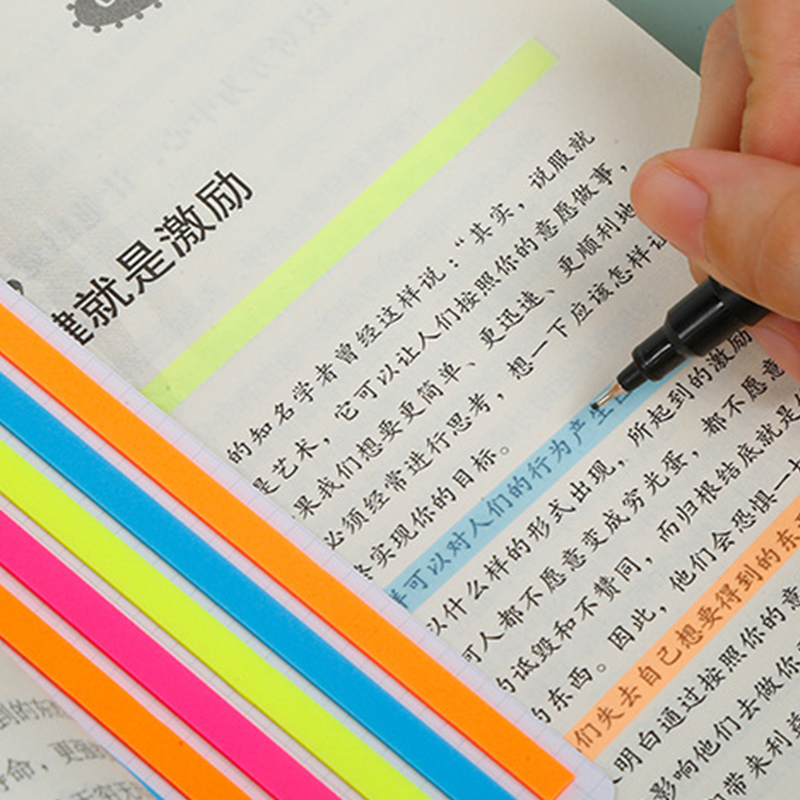 就是激励
的知名学者曾经这样说：“其实，说服就
是艺术，它可以让人们按照你的意愿做事，
果我们想要更简单、更迅速、更顺利地
必须经常进行思考，想一下应该怎样让
实现你的目标。
样可以对人们的行为产生
以什么样的形式出现，所起到的激励
何人都不愿意变成穷光蛋，都不愿意
的诋毁和不赞同，而归根结底就是
的东西。因此，他们会恐惧一
们失去自己想要得到的东
明白通过按照你的意
影响他们去做你
带来利益